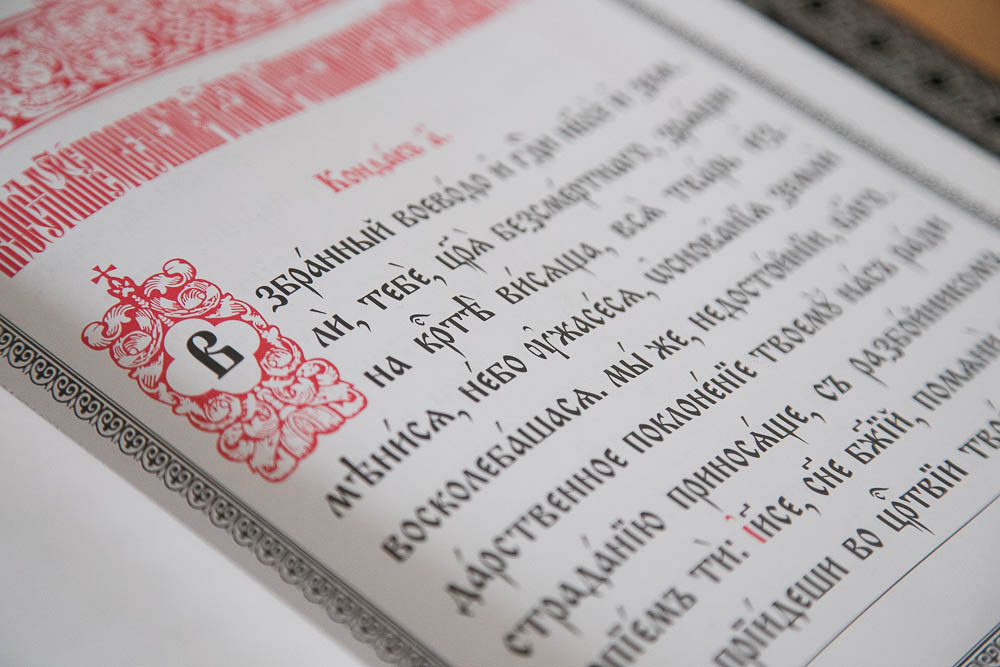 Конда́къ а҃.
Взбра́нный воево́до и҆ гдⷭ҇и нб҃сѐ и҆ зем-
лѝ, тебѐ, цр҃ѧ̀ безсме́ртнаго, зрѧ́ще
на крⷭ҇тѣ̀ ви́сѧща, всѧ̀ тва́рь из-
мѣни́сѧ, не́бо ᲂу҆жасе́сѧ, ѡ҆снова̑нїѧ землѝ
восколеба́шасѧ. мы́ же, недосто́йнїи, бл҃го-
да́рственное поклоне́нїе твоемꙋ̀ на́съ ра́ди
страда́нїю приносѧ́ще, съ разбо́йникомъ
вопїе́мъ тѝ: і҆и҃се, сн҃е бж҃їй, помѧнѝ
прїи́деши во црⷭ҇твїи тво